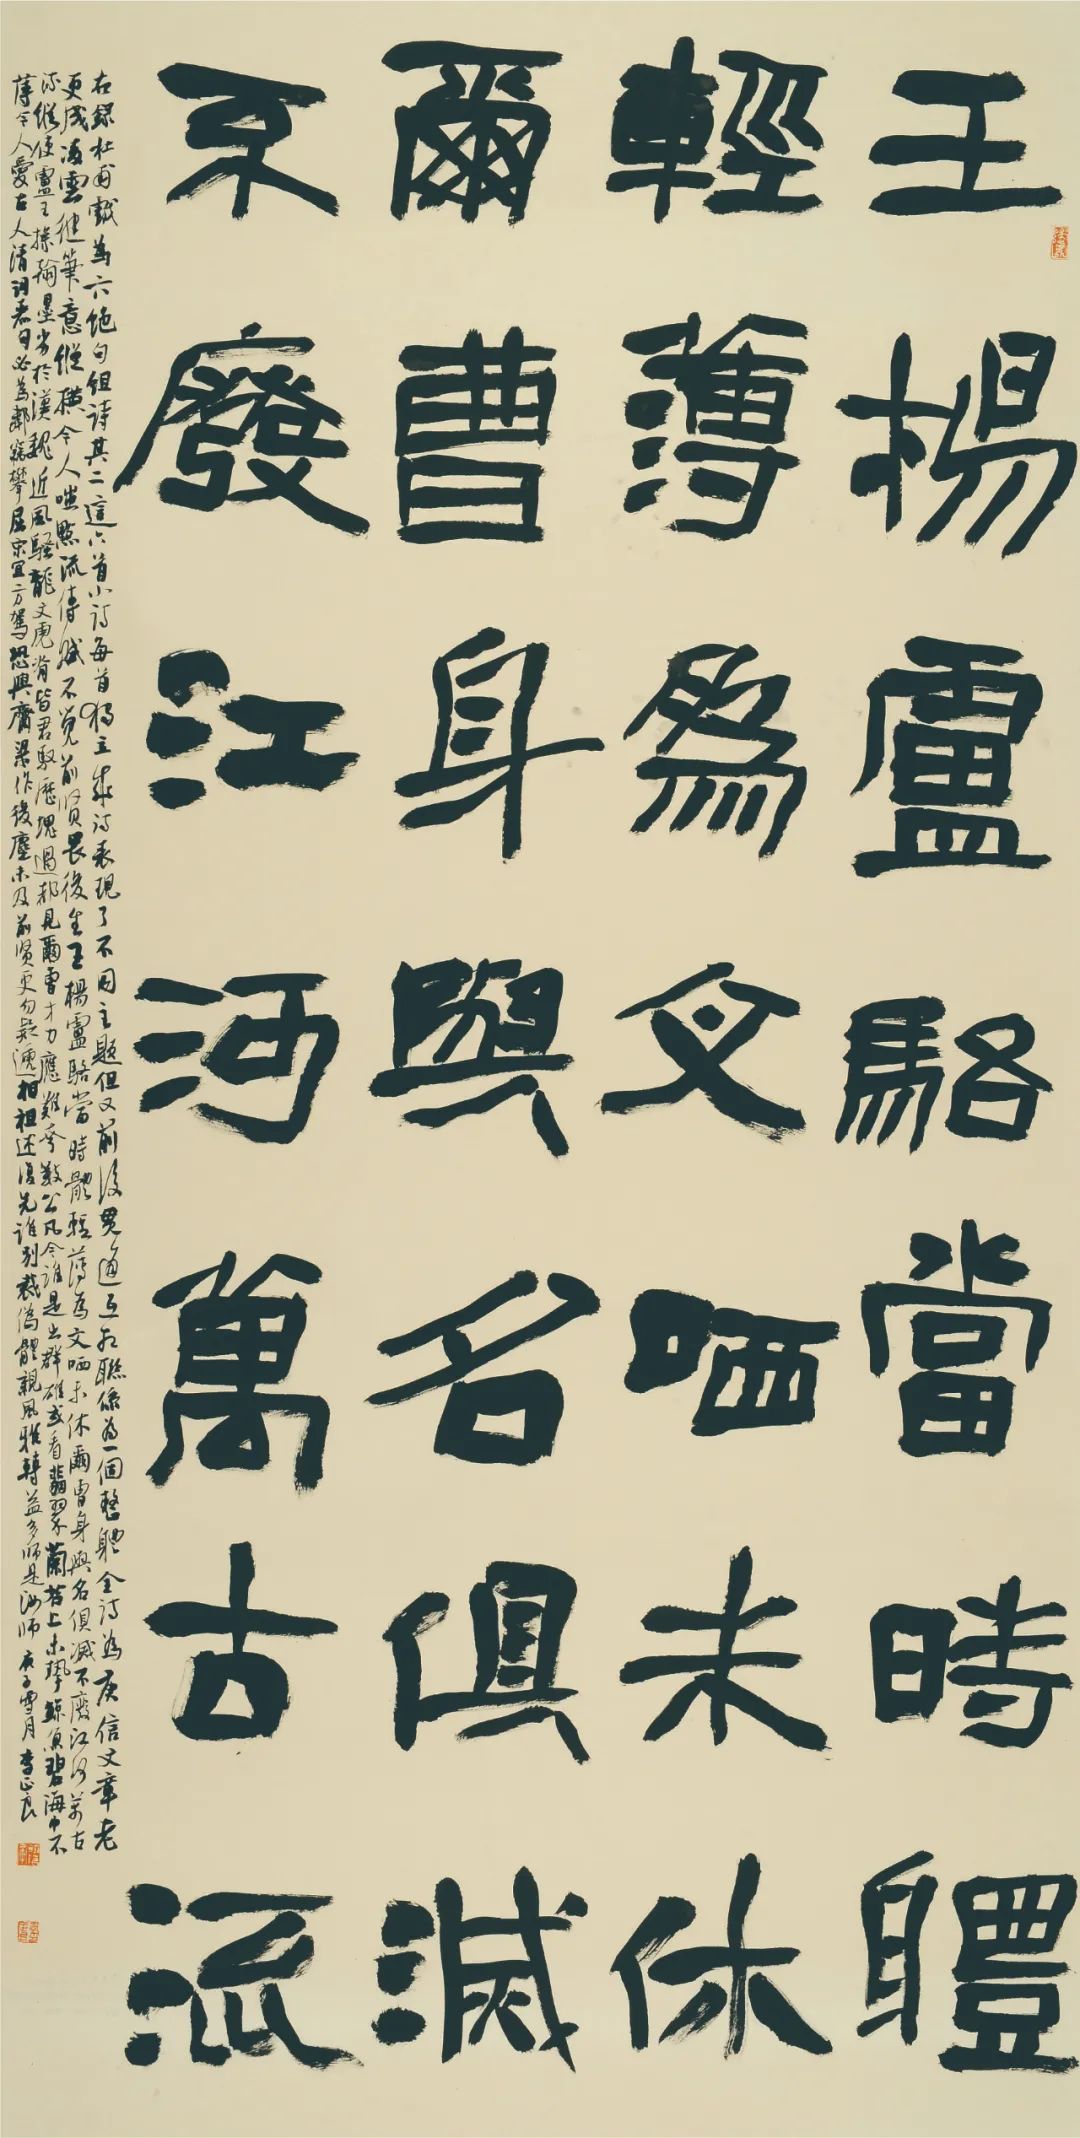 王楊盧駱當時軆
輕薄為文哂未休
爾曹身與名俱滅
不廢江河萬古流
右錄杜甫戲為六絕句組詩其二這六首小詩每首獨立成詩表現了不同主題但又前後貫通互相聯係為一個整軆全詩為庾信文章老
更成凌雲健筆意縱橫今人嗤點流傳賦不覺前賢畏後生王楊盧駱當時體輕薄為文哂未休爾曹身與名俱滅不廢江河萬古
流縱使盧王操翰墨劣於漢魏近風騷龍文虎脊皆君馭歷塊過都見爾曹才力應難夸數公凡今誰是出群雄或看翡翠蘭苕上未掣鯨魚碧海中不
薄今人愛古人清詞麗句必為鄰竊攀屈宋宜方駕恐與齊梁作後塵未及前賢更勿疑遞相祖述復先誰別裁偽體親風雅轉益多師是汝師 庚子雪月 李正良